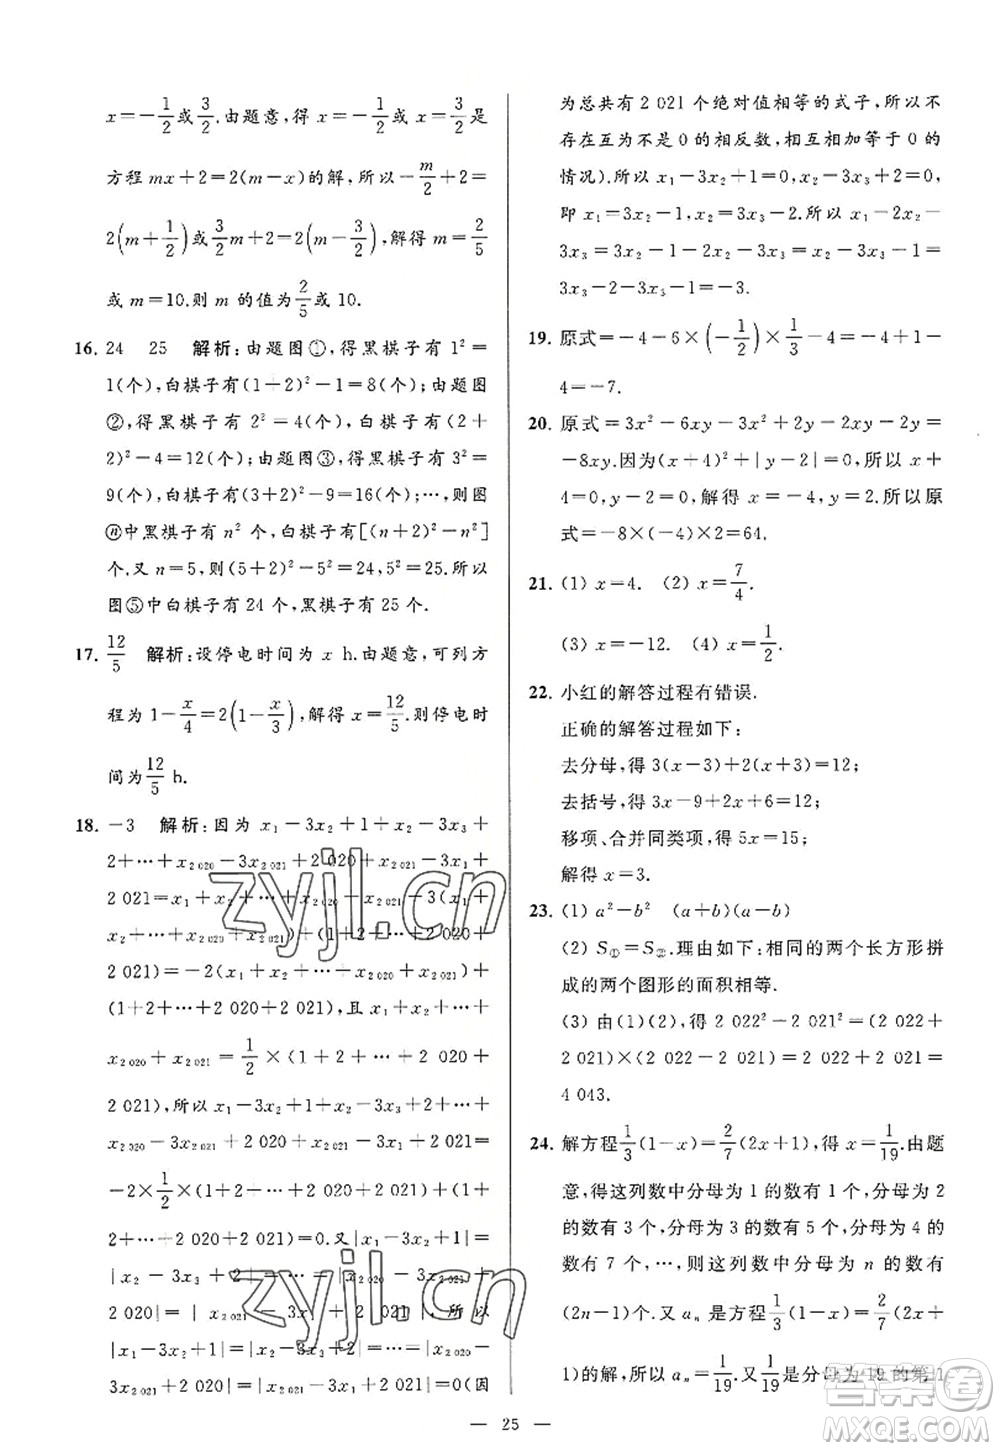 x=-1/2或3/2.由题意,得 x=-1/2或3/2是
方程 mx+2=2(m-x)的解,所以-m/2+2=
2(m+1/2)或3/2m+2=2(m-3/2),解得 m=2/5
或 m=10.则 m 的值为2/5或 10.
16. 24 25 解析:由题图①,得黑棋子有 1²=
1(个),白棋子有(1+2)²-1=8(个);由题图
②,得黑棋子有 2²=4(个),白棋子有(2+
2)²-4=12(个);由题图③,得黑棋子有 3²=
9(个),白棋子有(3+2)²-9=16(个);…,则图
ⓝ中黑棋子有 n² 个,白棋子有[(n+2)²-n²]
个.又 n=5,则(5+2)²-5²=24,5²=25.所以
图⑤中白棋子有 24 个,黑棋子有 25 个.
17. 12/5 解析:设停电时间为 x h.由题意,可列方
程为 1-x/4=2(1-x/3),解得 x=12/5.则停电时
间为12/5 h.
18. -3 解析:因为 x₁-3x₂+1+x₂-3x₃+
2+…+x₂ ₀₂₀-3x₂ ₀₂₁+2 020+x₂ ₀₂₁-3x₁+
2 021=(x₁+x₂+…+x₂ ₀₂₁)-3(x₁+
x₂+…+x₂ ₀₂₁)+(1+2+…+2 020+
2 021)=-2(x₁+x₂+…+x₂ ₀₂₁)+
(1+2+…+2 020+2 021),且 x₁+x₂+…+
x₂ ₀₂₀+x₂ ₀₂₁=1/2×(1+2+…+2 020+
2 021),所以 x₁-3x₂+1+x₂-3x₃+2+…+
x₂ ₀₂₀-3x₂ ₀₂₁+2 020+x₂ ₀₂₁-3x₁+2 021=
-2×1/2×(1+2+…+2 020+2 021)+(1+
2+…+2 020+2 021)=0.又|x₁-3x₂+1|=
|x₂-3x₃+2|=…=|x₂ ₀₂₀-3x₂ ₀₂₁+
2 020|=|x₂ ₀₂₁-3x₁+2 021|,所以
|x₁-3x₂+1|=|x₂-3x₃+2|=…=|x₂ ₀₂₀-
3x₂ ₀₂₁+2 020|=|x₂ ₀₂₁-3x₁+2 021|=0(因
为总共有 2 021 个绝对值相等的式子,所以不
存在互为不是 0 的相反数,相互相加等于 0 的
情况).所以 x₁-3x₂+1=0,x₂-3x₃+2=0,
即 x₁=3x₂-1,x₂=3x₃-2.所以 x₁-2x₂-
3x₃=3x₂-1-2x₂-3x₃=x₂-3x₃-1=
3x₃-2-3x₃-1=-3.
19. 原式=-4-6×(-1/2)×1/3-4=-4+1-
4=-7.
20. 原式=3x²-6xy-3x²+2y-2xy-2y=
-8xy.因为(x+4)²+|y-2|=0,所以 x+
4=0,y-2=0,解得 x=-4,y=2.所以原
式=-8×(-4)×2=64.
21. (1) x=4. (2) x=7/4.
(3) x=-12. (4) x=1/2.
22. 小红的解答过程有错误.
正确的解答过程如下:
去分母,得 3(x-3)+2(x+3)=12;
去括号,得 3x-9+2x+6=12;
移项、合并同类项,得 5x=15;
解得 x=3.
23. (1) a²-b² (a+b)(a-b)
(2) S①=S②.理由如下:相同的两个长方形拼
成的两个图形的面积相等.
(3) 由(1)(2),得 2 022²-2 021²=(2 022+
2 021)×(2 022-2 021)=4 043×1=
4 043.
24. 解方程1/3(1-x)=2/7(2x+1),得 x=1/19.由题
意,得这列数中分母为 1 的数有 1 个,分母为 2
的数有 3 个,分母为 3 的数有 5 个,分母为 4 的
数有 7 个,…,则这列数中分母为 n 的数有
(2n-1)个.又 aₙ 是方程1/3(1-x)=2/7(2x+
1)的解,所以 aₙ=1/19.又1/19是分母为 19 的第 1
— 25 —
zyjl.cn
zyjl.cn
答案圈
MXQE.COM